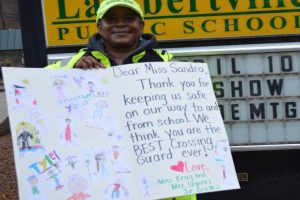 Lambertville
PUBLIC SCHOOL
IL 10
SHOW
EMTG
Dear Miss Sandra,
Thank you for
keeping us safe
on our way to and
from school. We
think you are the
BEST Crossing
Guard ever!
Love,
Miss
and
Mrs.
3rd Grade